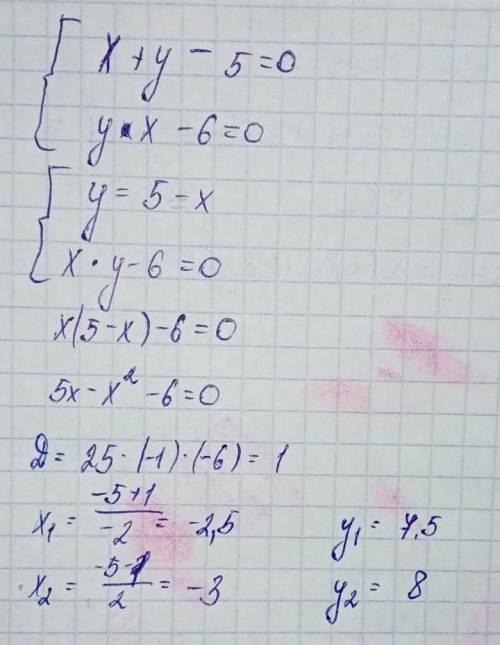 x + y - 5 = 0
y · x - 6 = 0
y = 5 - x
x · y - 6 = 0
x(5 - x) - 6 = 0
5x - x² - 6 = 0
D = 25 · (-1) · (-6) = 1
x₁ = (-5+1)/(-2) = -2,5 y₁ = 7,5
x₂ = (-5-1)/2 = -3 y₂ = 8